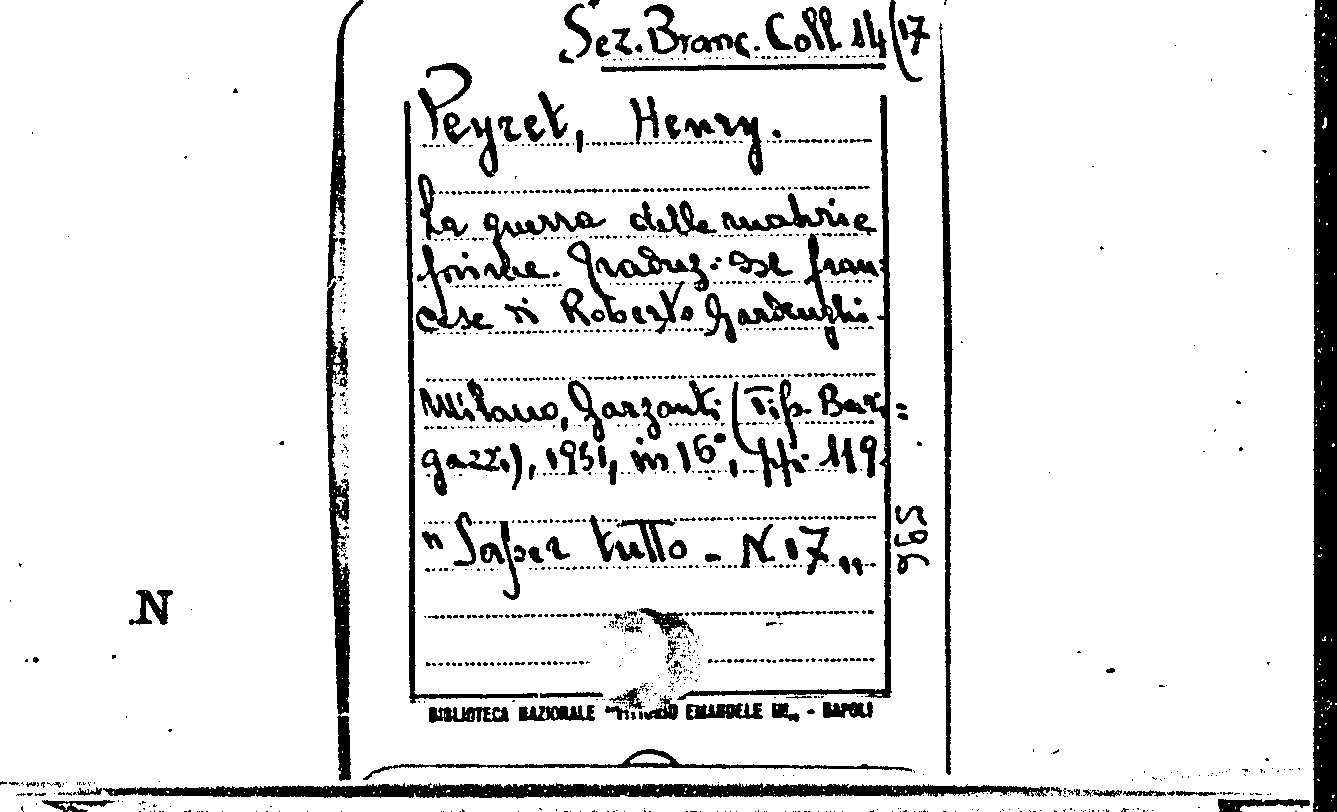 Sez. Branc. Coll. 14(17
Peyret, Henry.
La guerra delle materie
prime. Traduz. del fran-
cese di Roberto
Milano, Garzanti (Tip. Beri=
gazzi), 1951, in 16°, pp. 119
"Saper tutto - N. 17„
596
N
BIBLIOTECA NAZIONALE "VITTORIO EMANUELE III„ - NAPOLI